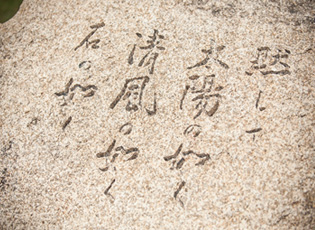 黙して
太陽の如く
清風の如く
石の如く